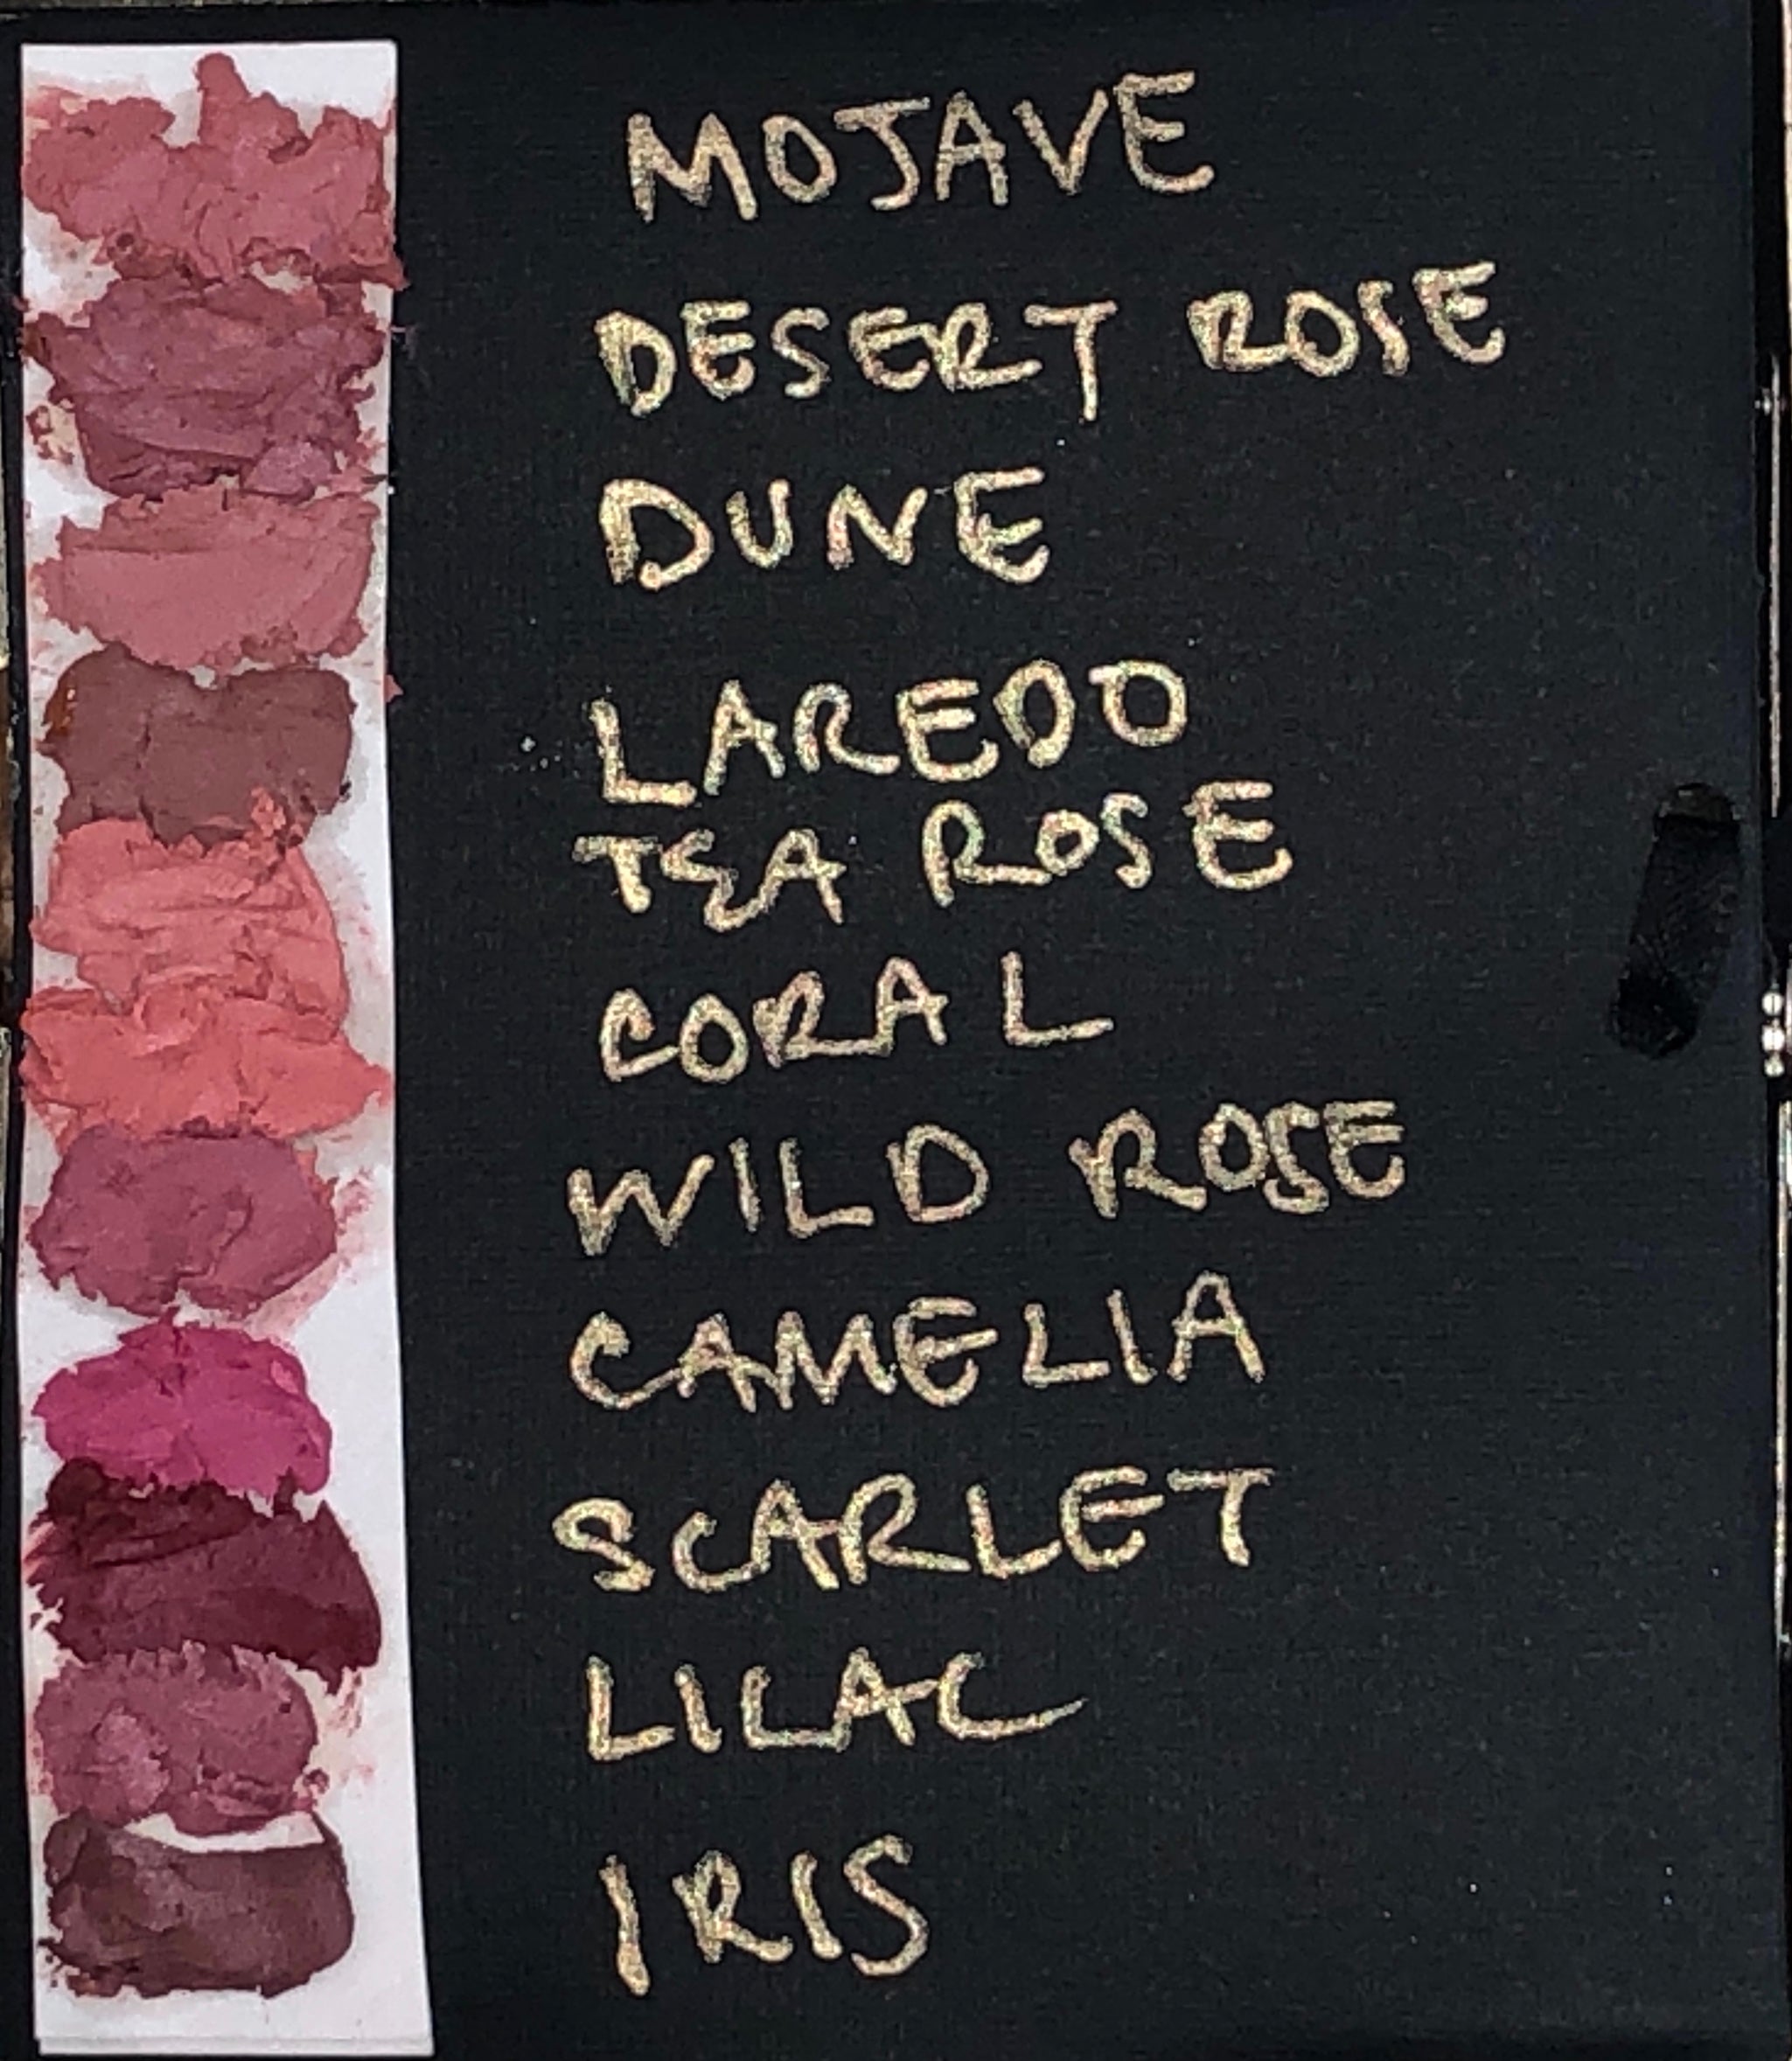 MOJAVE
DESERT ROSE
DUNE
LAREDO
TEA ROSE
CORAL
WILD ROSE
CAMELIA
SCARLET
LILAC
IRIS